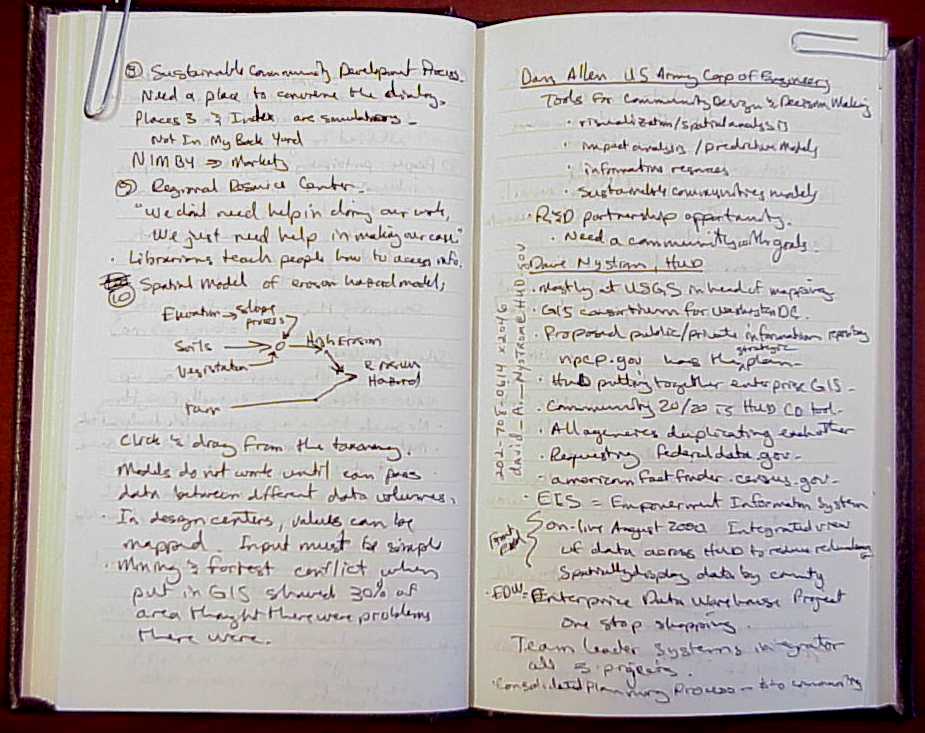 ⑤ Sustainable Community Development Process.
Need a place to convene the dialog.
Places 3 & Index are simulators.
Not In My Back Yard
NIMBY ⇒ Markets
⑤ Regional Resource Center.
"We don't need help in doing our work,
We just need help in making our case"
· Librarians teach people how to access info.
⑥ Spatial Model of erosion hazard models
Elevation → slope
process
Soils → O → High Erosion
Vegetation
Erosion
Hazard
Click & drag from the taxonomy.
Models do not work until can pass
data between different data volumes.
· In design centers, values can be
mapped Input must be simple
· Mining & forest conflict, when
put in GIS showed 30% of
area thought there were problems
there were.
Dan Allen US Army Corp of Engineers
Tools for Community Design & Decision Making
· visualization/spatial analysis
· impact analysis/predictive models
· information resources
· sustainable communities models
· R&D partnership opportunity.
· Need a community with goals.
Dave Nystrom, HUD
202-708-0614 x2046
david_A._Nystrom@HUD.GOV
· mostly at USGS in head of mapping
· GIS consortium for Washington DC.
· Proposed public/private information
npcp.gov has the strategic plan
· HUD putting together enterprise GIS.
· Community 20/20 is HUD CD tool.
· All agencies duplicating each other
· Requesting federaldata.gov.
· americanfactfinder.census.gov.
· EIS = Empowerment Information System
on-live August 2000 Integrated view
of data across HUD to reduce redundancy
Spatially display data by county
· EDW = Enterprise Data Warehouse Project
One stop shopping.
Team leader systems integrator
all 3 projects.
· Consolidated Planning Process - $ to community